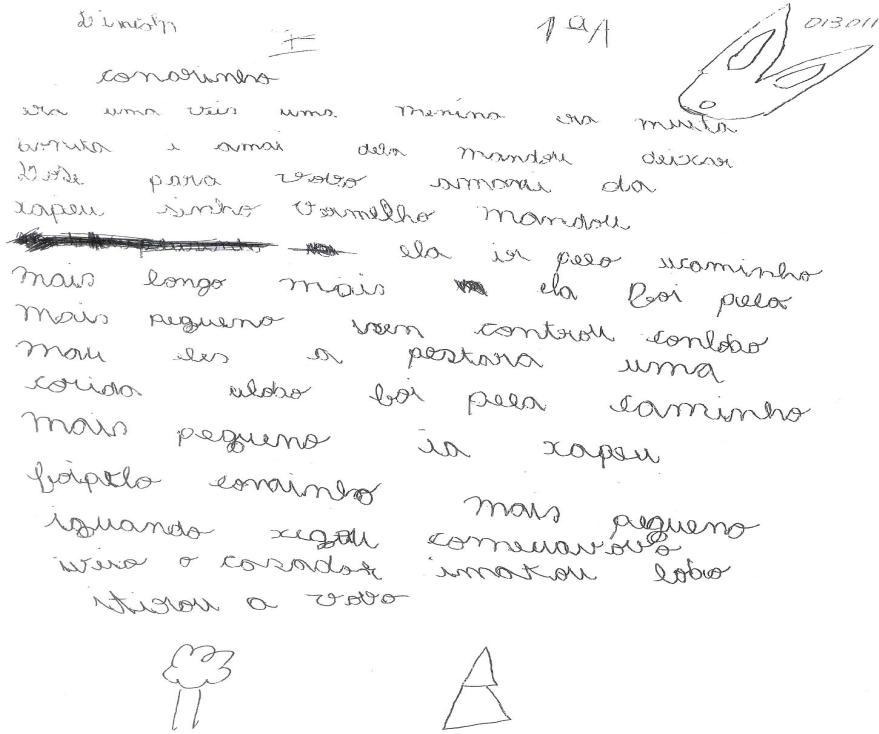 1ª A 013011
era uma veis uma menina era muita
bonita i amai dela mandou deixar
para vovo amami da
xapeu sinho vermelho mandou
ela ir pelo ucaminho
mais longo mais ela foi pelo
mais pegueno controu conlobo
mau eles a postara uma
corida ulobo foi pela caminho
mais pegueno ia xapeu
foipelo mais pegueno
iguando xegou comeuavovo
iveio o casador imatou lobo
itirou a vovo